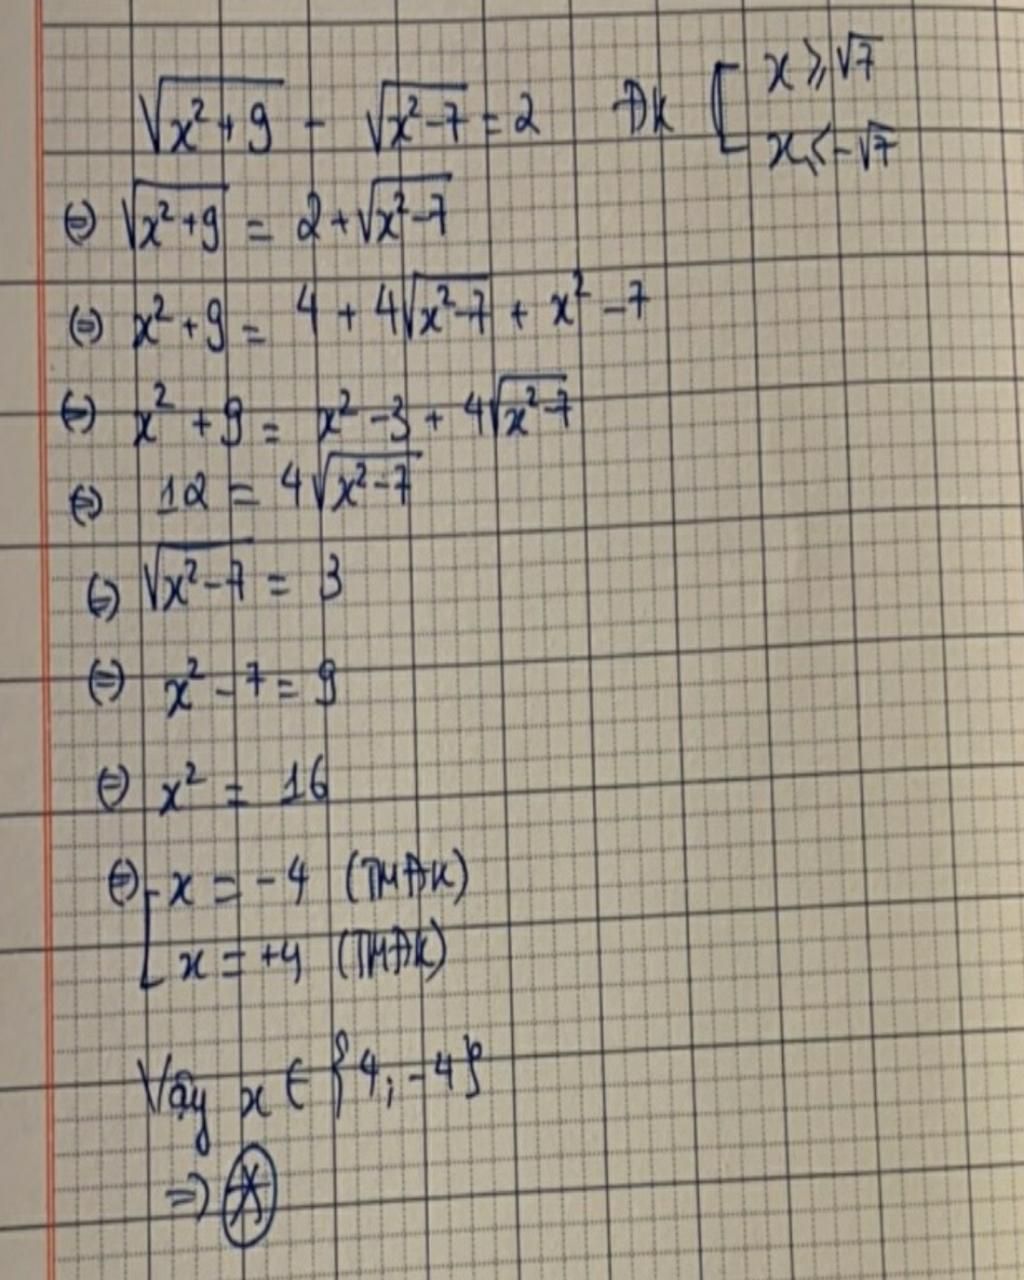 √(x²+9) - √(x²-7) = 2 ĐK [ x ≥ √7
x ≤ -√7
⇔ √(x²+9) = 2+√(x²-7)
⇔ x²+9 = 4 + 4√(x²-7) + x² -7
⇔ x² +9 = x² -3 + 4√(x²-7)
⇔ 12 = 4√(x²-7)
⇔ √(x²-7) = 3
⇔ x² - 7 = 9
⇔ x² = 16
⇔ [ x = -4 (TMĐK)
x = +4 (TMĐK)
Vậy x ∈ {4; -4}
⇒ Ⓐ